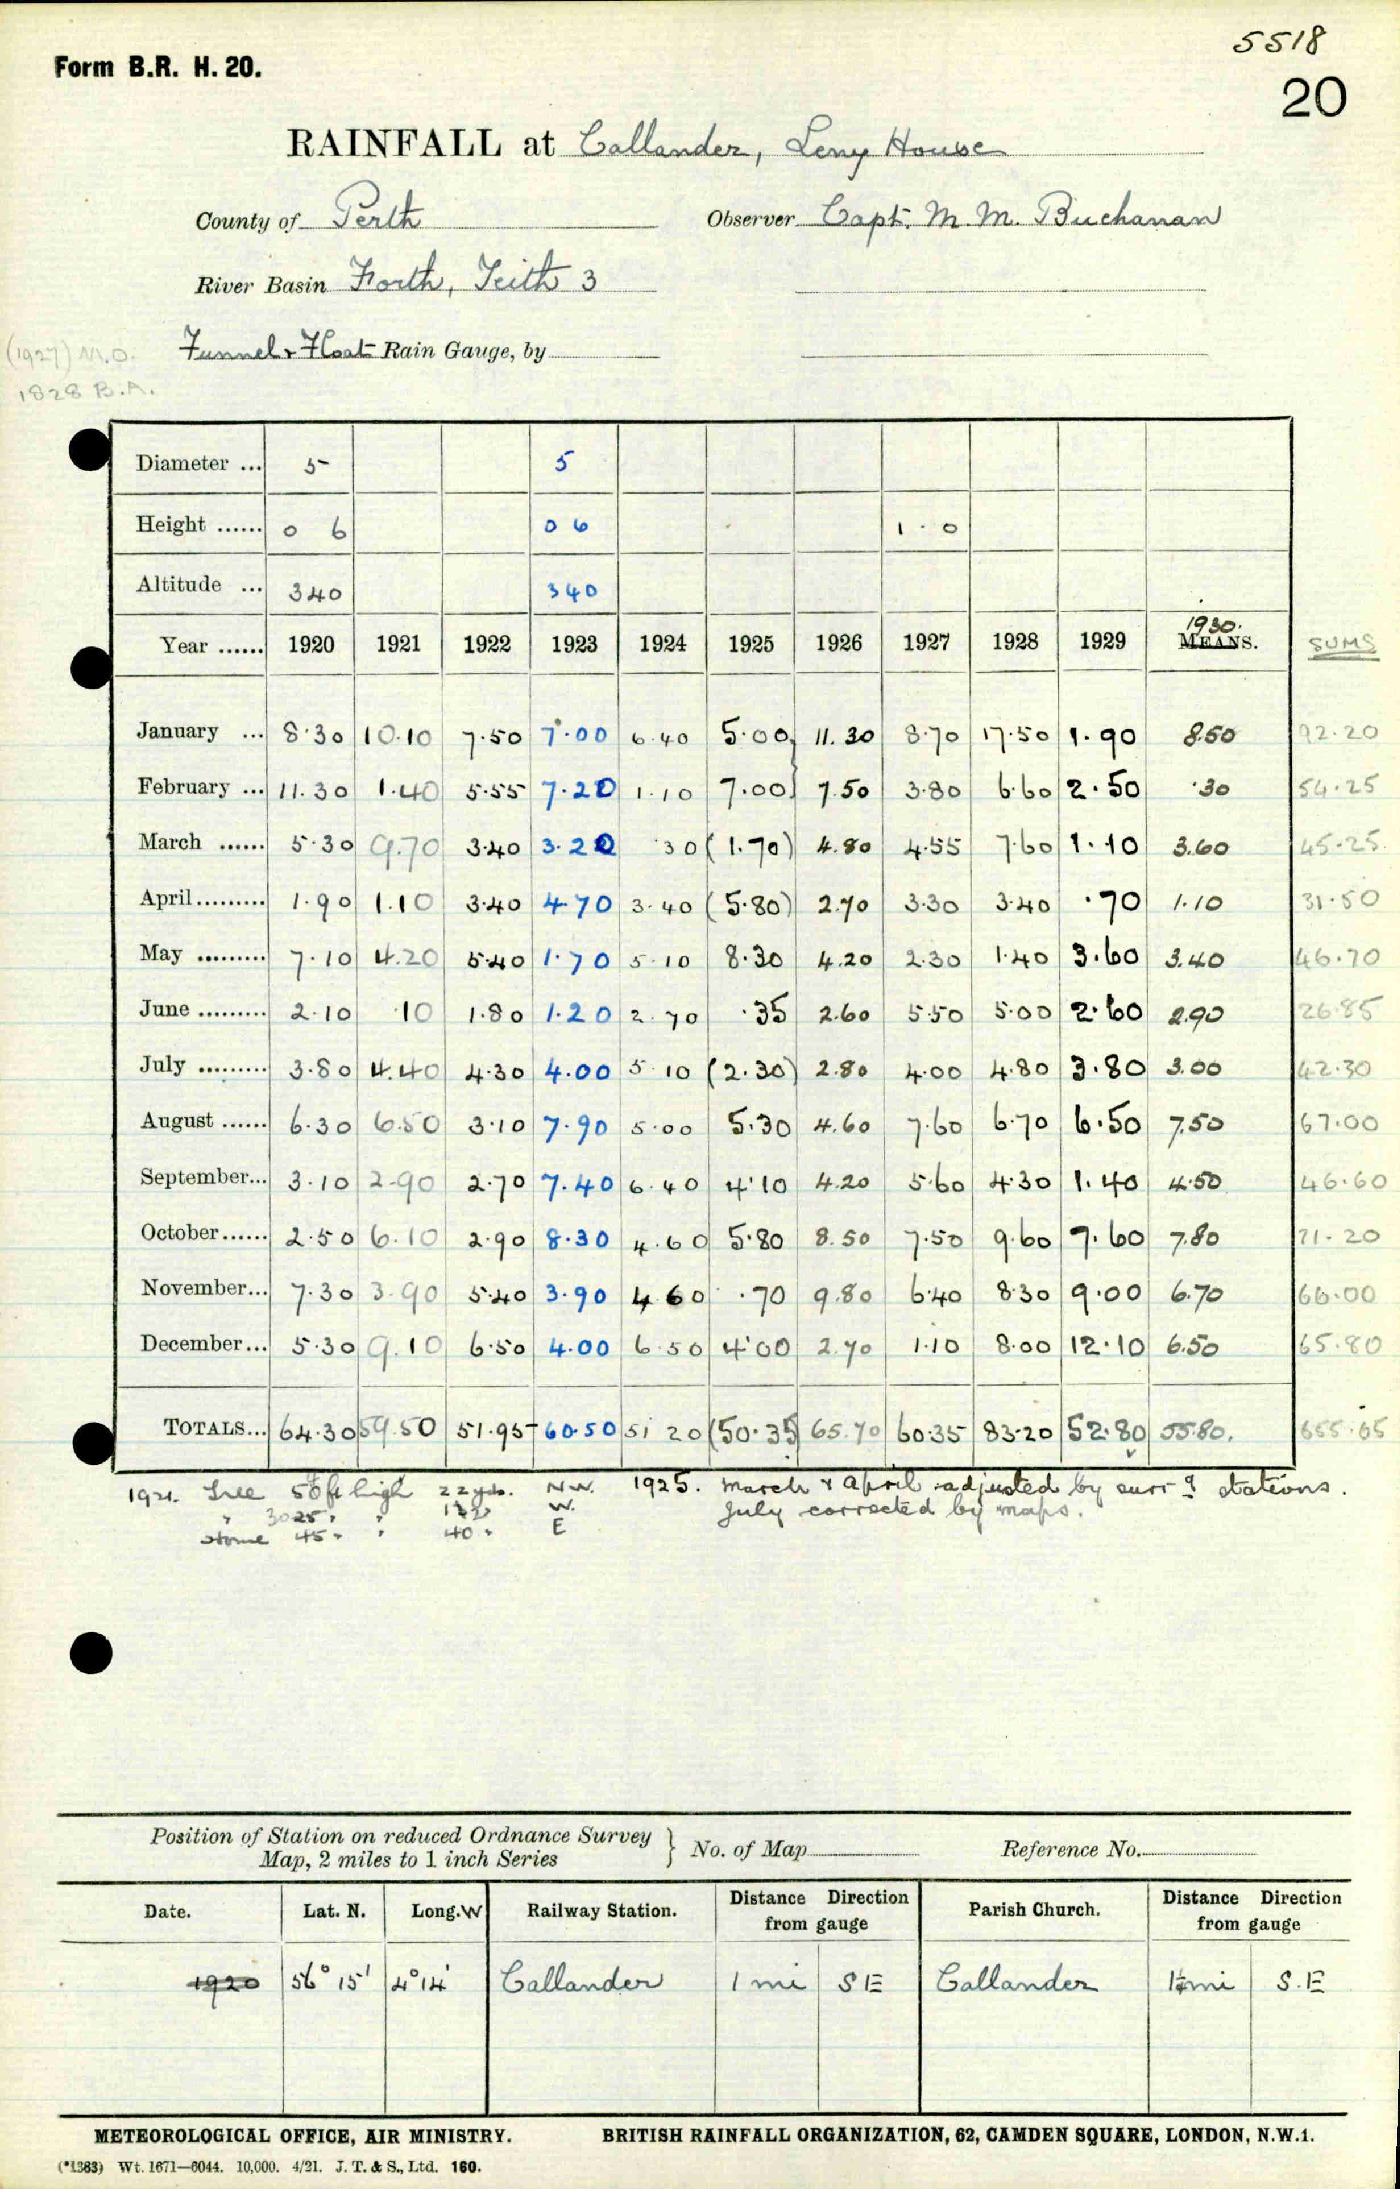 5518
Form B.R. H. 20.
20
RAINFALL at Callander, Leny House
County of Perth Observer Capt. M. M. Buchanan
River Basin Forth, Teith 3
Funnel & Float Rain Gauge, by
(1927) M.O.
1828 B.A.
Diameter ... 5 5
Height ...... 0 6 0 6 1 · 0
Altitude ... 340 340
Year ...... 1920 1921 1922 1923 1924 1925 1926 1927 1928 1929 1930. MEANS. SUMS
January ... 8·30 10·10 7·50 7·00 6 40 5·00 11.30 8·70 17·50 1·90 8.50 92·20
February ... 11.30 1·40 5·55 7·20 1·10 7·00 7.50 3·80 6·60 2·50 ·30 54·25
March ...... 5·30 9.70 3·40 3·20 ·30 (1·70) 4.80 4·55 7·60 1·10 3.60 45·25
April......... 1·90 1.10 3·40 4·70 3·40 (5·80) 2.70 3·30 3·40 ·70 1·10 31·50
May ......... 7·10 4.20 5·40 1·70 5·10 8·30 4.20 2·30 1·40 3·60 3.40 46·70
June ......... 2·10 ·10 1·80 1·20 2·70 ·35 2.60 5·50 5·00 2·60 2.90 26·85
July ......... 3·80 4.40 4·30 4·00 5 10 (2·30) 2.80 4·00 4·80 3·80 3.00 42·30
August ...... 6·30 6·50 3·10 7·90 5·00 5·30 4.60 7·60 6·70 6·50 7.50 67·00
September... 3·10 2·90 2·70 7·40 6·40 4·10 4.20 5·60 4·30 1·40 4·50 46·60
October...... 2·50 6·10 2·90 8·30 4·60 5·80 8.50 7·50 9·60 7·60 7.80 71·20
November... 7·30 3·90 5·40 3·90 4 60 ·70 9.80 6·40 8·30 9·00 6·70 66·00
December... 5·30 9.10 6·50 4·00 6 50 4·00 2.70 1·10 8·00 12·10 6.50 65·80
TOTALS... 64·30 59.50 51·95 60·50 51 20 (50·35) 65.70 60·35 83·20 52·80 55.80. 655·65
1921. Tree 50 ft high 22 yds. N.W. 1925. March & April adjusted by surrg stations.
" " W. July corrected by maps.
45 " " 40 " E
Position of Station on reduced Ordnance Survey
Map, 2 miles to 1 inch Series } No. of Map Reference No.
Date. Lat. N. Long. W Railway Station. Distance Direction from gauge Parish Church. Distance Direction from gauge
1920 56° 15' 4° 14' Callander 1 mi S E Callander mi S.E
METEOROLOGICAL OFFICE, AIR MINISTRY. BRITISH RAINFALL ORGANIZATION, 62, CAMDEN SQUARE, LONDON, N.W.1.
(*1383) Wt. 1671—6044. 10,000. 4/21. J. T. & S., Ltd. 160.